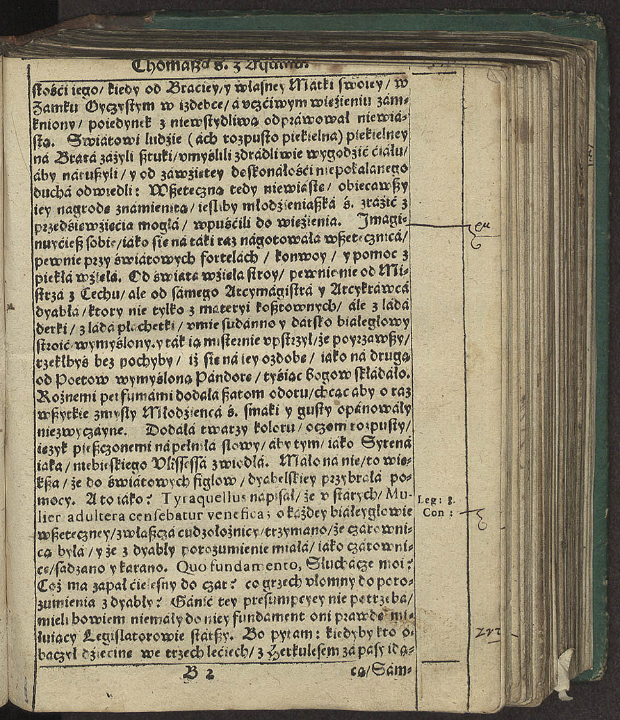 Thomasza S. z Aquinu.
skości iego/ kiedy od Braciey/ y własney Matki swoiey/ w
Zamku Oyczystym w izdebce/ a vczćiwym więzieniu zam-
kniony/ poiedynek z niewstydliwą odprawował niewiá-
stą. Swiátowi ludzie (ach rozpusto piekielna) piekielney
ná Brátá záżyli sztuki/ vmyślili zdrádliwie wygodzić ćiáłu/
áby náruszyli/ y od záwzistey doskonáłości niepokalánego
duchá odwiedli: Wszeteczną tedy niewiástę/ obiecawszy
iey nagrodę znamienitą/ iesliby młodzieniászká ś. zrazić z
przedsięwzięcia mogłá/ wpuśćili do więzienia. Imagi-
nuyćiesz sobie/ iáko się ná táki raz nágotowáłá wszetecznicá/
pewnie przy świátowych fortelách/ konwoy/ y pomoc z
piekłá wzięłá. Od świátá wzięłá stroy/ pewnie nie od Mi-
strzá z Cechu/ ále od sámego Arcymágistrá y Arcykráwcá
dyabłá/ ktory nie tylko z máteryi kosztownych/ ále z ládá
derki/ z ládá płachetki/ vmie sudanno y dársko białegłowy
stroić wymyślony. y ták ią misternie vpstrzył/ że poyrzawszy/
rzekłbyś bez pochyby/ iż się ná iey ozdobę/ iáko ná drugą
od Poetow wymyśloną Pándorę/ tysiąc bogow składáło.
Rożnemi perfumámi dodáłá szátom odoru/ chcąc áby o raz
wszytkie zmysły Młodzieńcá ś. smáki y gusty opánowáły
niezwyczáyne. Dodáłá twarzy koloru/ oczom rozpusty/
ięzyk pieszczonemi nápełniłá słowy/ áby tym/ iáko Syrená
iáka/ niebieskiego Vlissessá zwiodłá. Máło ná nię/ to wię-
ksza/ że do świátowych figlow/ dyabelskiey przybráłá po-
mocy. A to iáko? Tyraquellus nápisał/ że v stárych/ Mu-
lier adultera censebatur venefica: o káżdey białeygłowie
wszeteczney/ zwłaszczá cudzołożnicy/ trzymano/ że czárowni-
cą byłá/ y że z dyabły porozumienie miáłá/ iáko czárowni-
cę/ sądzano y karano. Quo fundamento, Słuchácze moi?
Coż ma zapał ćielesny do czár? co grzech vłomny do poro-
zumienia z dyabły? Gánić tey presumpcyey nie potrzebá/
mieli bowiem niemáły do niey fundáment oni prawdę mi-
łuiący Legislatorowie stárszy. Bo pytam: kiedyby kto o-
baczył dziećinę we trzech lećiech/ z Herkulesem zá pásy idą-
B 2 cą/ Sam-
Leg: 8.
Con: